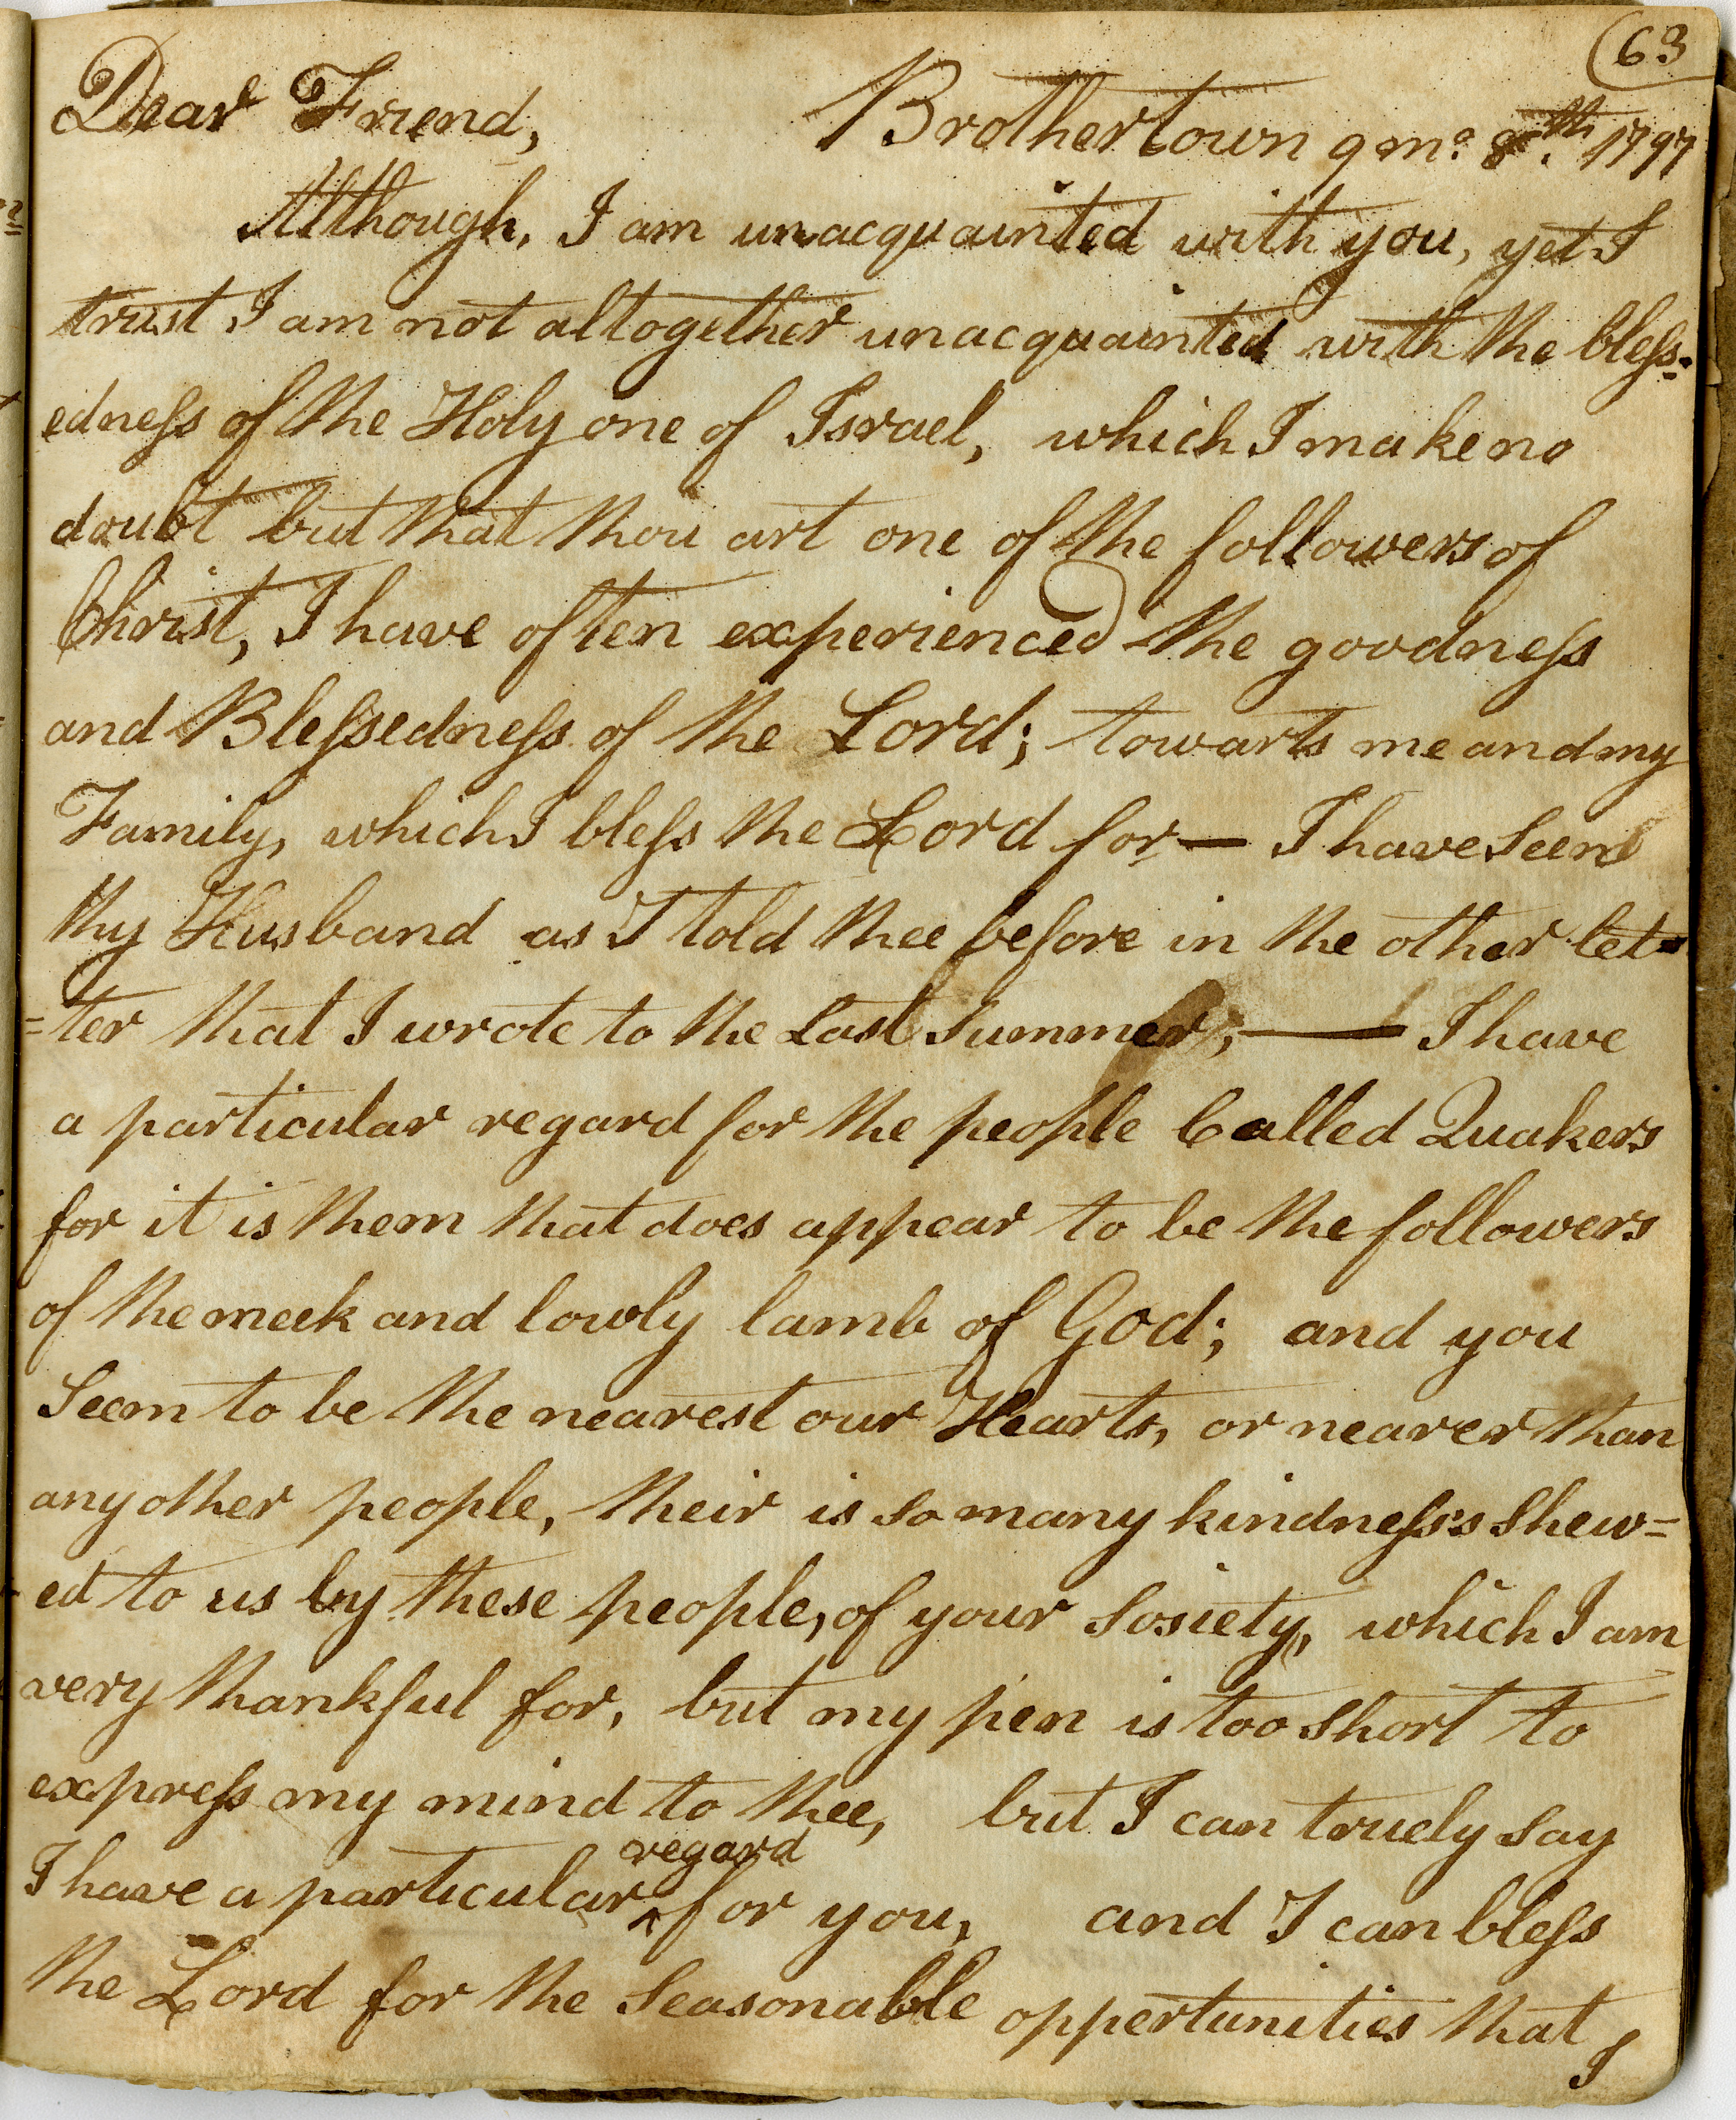 63
Dear Friend, Brothertown 9 mo. 8th. 1797
Although, I am unacquainted with you, yet I
trust I am not altogether unacquainted with the bless-
edness of the Holy one of Israel, which I make no
doubt but that thou art one of the followers of
Christ, I have often experienced the goodness
and Blessedness of the Lord; towarts me and my
Family, which I bless the Lord for — I have Seen
thy Husband as I told thee before in the other let=
=ter that I wrote to the Last Summer; — I have
a particular regard for the people Called Quakers
for it is them that does appear to be the followers
of the meek and lowly lamb of God; and you
Seem to be the nearest our Hearts, or nearer than
any other people, their is so many kindness's shew=
ed to us by these people, of your Sosiety, which I am
very thankful for, but my pen is too short to
express my mind to thee, but I can truely say
I have a particular ^regard for you, and I can bless
the Lord for the Seasonable oppertunities that I